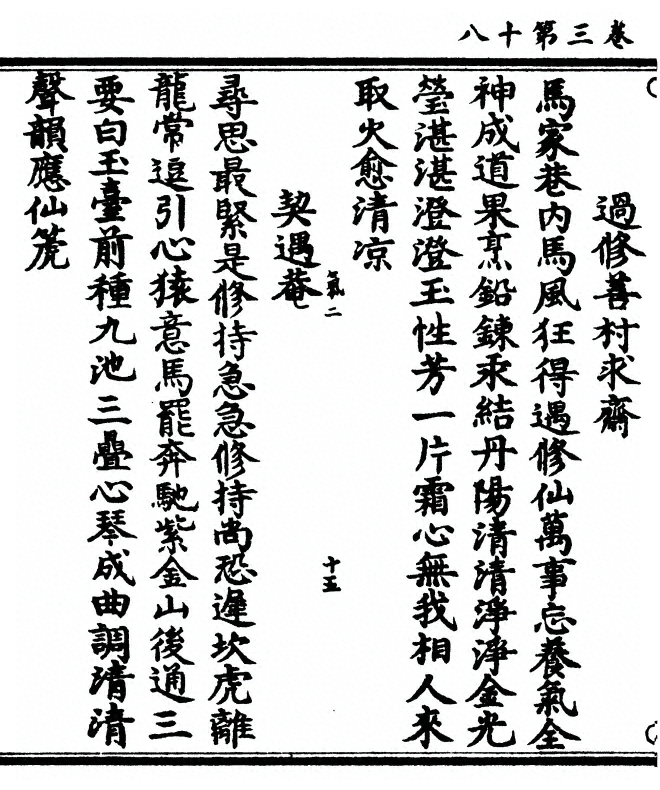 卷三第十八
過修善村求齋
馬家巷內馬風狂得遇修仙萬事忘養氣全
神成道果烹鉛鍊汞結丹陽清清淨淨金光
瑩湛湛澄澄玉性芳一片霜心無我相人來
取火愈清凉
氣二
十五
契遇菴
尋思最緊是修持急急修持尚恐遲坎虎離
龍常迨引心猿意馬罷奔馳紫金山後通三
要白玉臺前種九池三疊心琴成曲調清清
聲韻應仙箎